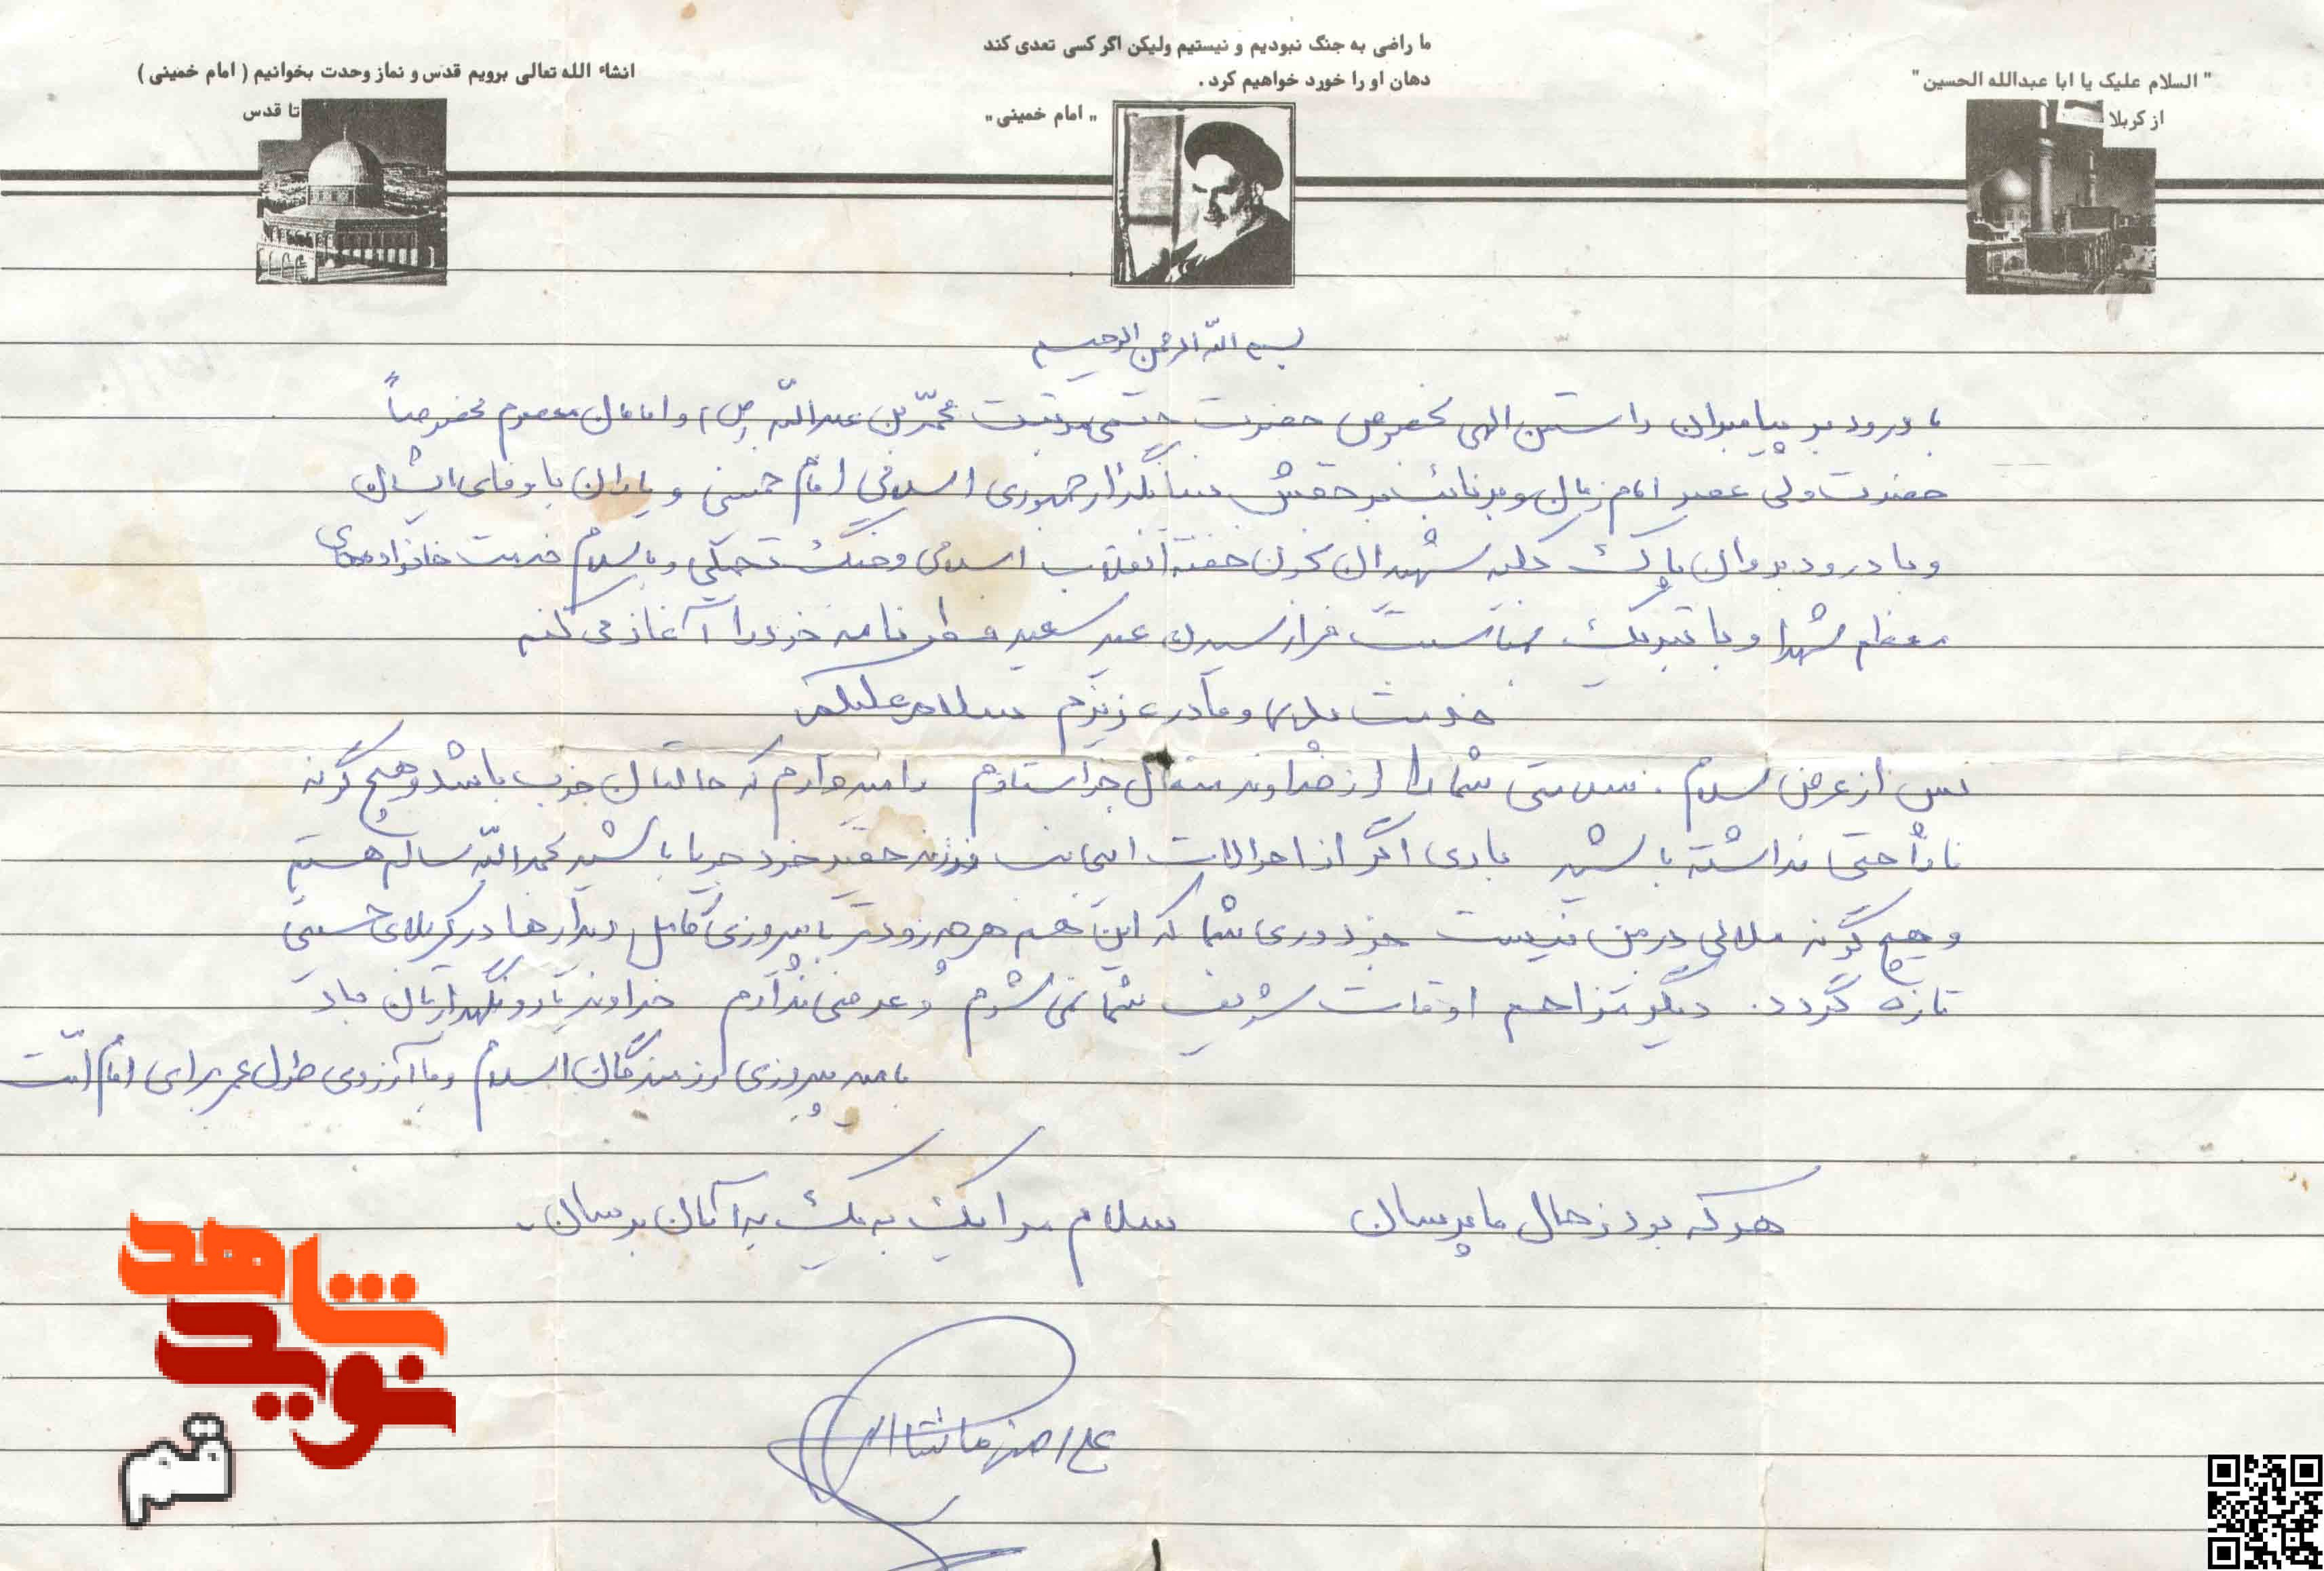 " السلام علیک یا ابا عبدالله الحسین "
از کربلا
ما راضی به جنگ نبودیم و نیستیم ولیکن اگر کسی تعدی کند
دهان او را خورد خواهیم کرد .
" امام خمینی "
انشاء الله تعالی برویم قدس و نماز وحدت بخوانیم ( امام خمینی )
تا قدس
بسم الله الرحمن الرحیم
با درود بر پیامبران راستین الهی بخصوص حضرت ختمی مرتبت محمّد بن عبدالله (ص) و امامان معصوم مخصوصاً
حضرت ولی عصر امام زمان و بر نائب بر حقش بنیانگذار جمهوری اسلامی امام خمینی و یاران با وفای ایشان
و با درود بر روان پاک کلیه شهیدان بخون خفته انقلاب اسلامی و جنگ تحمیلی و با سلام خدمت خانواده های
معظم شهدا و با تبریک بمناسبت فرا رسیدن عید سعید فطر نامه خود را آغاز می کنم
خدمت پدر و مادر عزیزم سلام علیکم
پس از عرض سلام . سلامتی شما را از خداوند متعال خواستارم و امیدوارم که حالتان خوب باشد و هیچ گونه
ناراحتی نداشته باشید باری اگر از احوالات اینجانب فرزند حقیر خود جویا باشید بحمدالله سالم هستم
و هیچ گونه ملالی در من نیست جز دوری شما که این هم هر چه زودتر با پیروزی کامل دیدارها در کربلای حسینی
تازه گردد . دیگر مزاحم اوقات شریف شما نمی شوم و عرضی ندارم خداوند یار و نگهدارتان باد
بامید پیروزی رزمندگان اسلام و با آرزوی طول عمر برای امام امّت
هر که بود ز حال ما پرسان سلام مرا یک به یک به آنان برسان
علی اصغر ماشاالله
نوید شاهد
قم